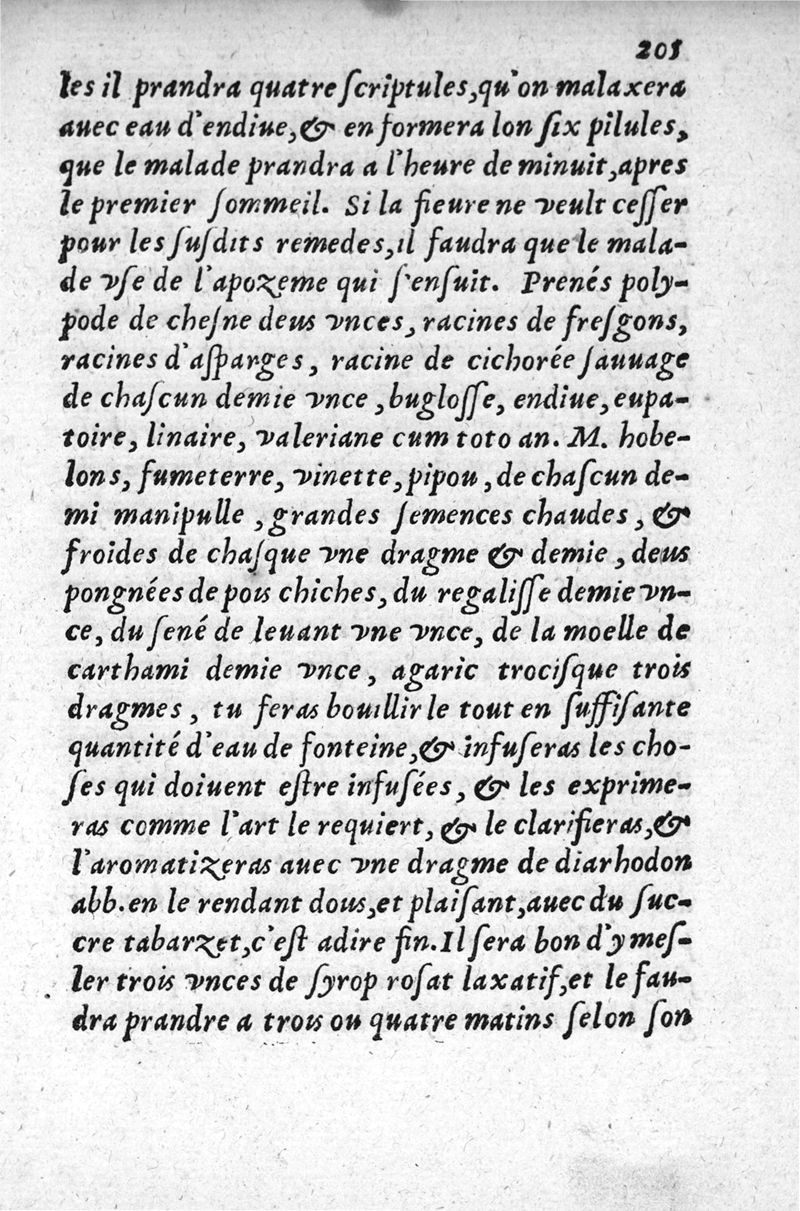 205
les il prandra quatre ſcriptules,qu'on malaxera
auec eau d'endiue,& en formera lon ſix pilules,
que le malade prandra a l'heure de minuit,apres
le premier ſommeil. Si la fieure ne veult ceſſer
pour les ſuſdits remedes,il faudra que le mala-
de vſe de l'apozeme qui ſ'enſuit. Prenés poly-
pode de cheſne deus vnces, racines de freſgons,
racines d'aſparges, racine de cichorée ſauuage
de chaſcun demie vnce ,bugloſſe, endiue, eupa-
toire, linaire, valeriane cum toto an. M. hobe-
lons, fumeterre, vinette, pipou ,de chaſcun de-
mi manipulle ,grandes ſemences chaudes, &
froides de chaſque vne dragme & demie , deus
pongnées de pois chiches, du regaliſſe demie vn-
ce, du ſené de leuant vne vnce, de la moelle de
carthami demie vnce, agaric trociſque trois
dragmes , tu feras bouillir le tout en ſuffiſante
quantité d'eau de fonteine,& infuſeras les cho-
ſes qui doiuent eſtre infuſées, & les exprime-
ras comme l'art le requiert, & le clarifieras,&
l'aromatizeras auec vne dragme de diarhodon
abb.en le rendant dous,et plaiſant,auec du ſuc-
cre tabarzet,c'eſt adire fin.Il ſera bon d'y meſ-
ler trois vnces de ſyrop roſat laxatif,et le fau-
dra prandre a trois ou quatre matins ſelon ſon